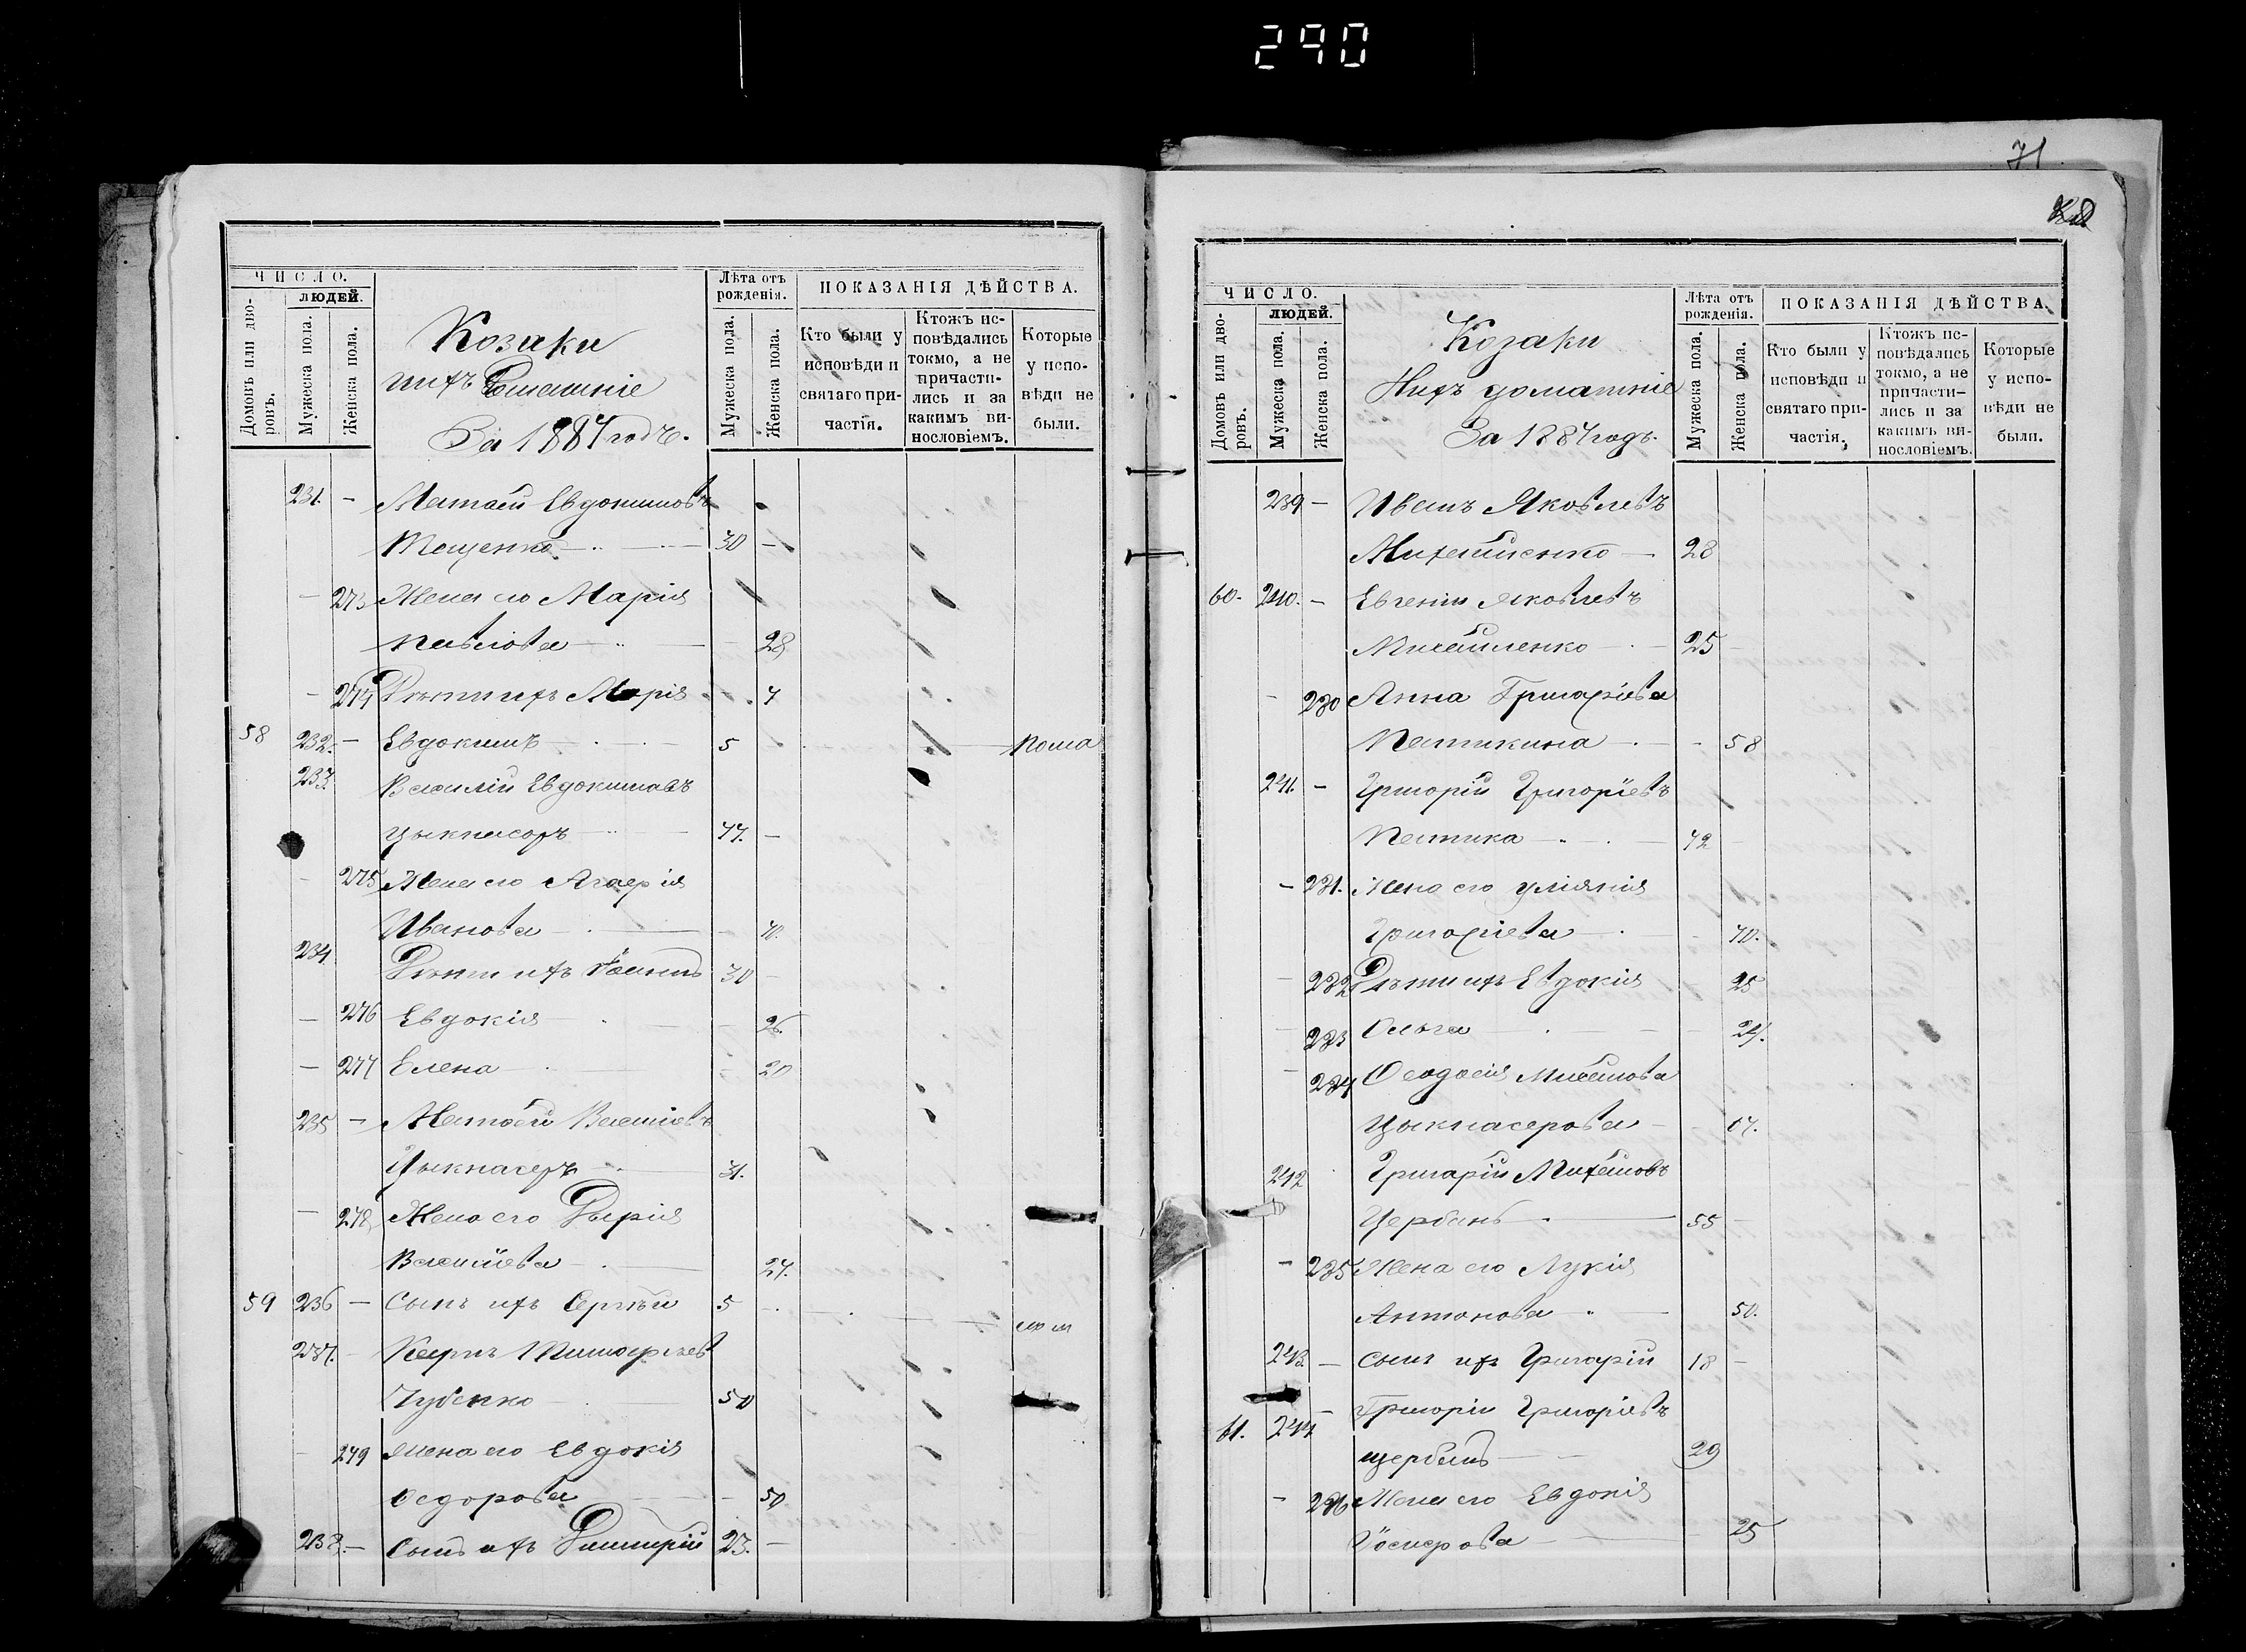 290
71
ЧИСЛО.
ЛЮДЕЙ.
Домовъ или дво-
ровъ.
Мужеска пола.
Женска пола.
Козаки
ихъ Домашніе
За 1884 годъ.
Лѣта отъ
рожденія.
Мужеска пола.
Женска пола.
ПОКАЗАНІЯ ДѢЙСТВА.
Кто были у
исповѣди и
святаго при-
частія.
Ктожъ ис-
повѣдались
токмо, а не
причасти-
лись и за
какимъ ви-
нословіемъ.
Которые
у испо-
вѣди не
были.
231. — Матвѣй Евдокимовъ
Тященко 30 —
— 273 Жена его Марія
Павлова — 28
— 274 Дѣти ихъ Марія — 7
58 232. — Евдокимъ 5
233. Василій Евдокимовъ
47. —
— 275 Жена его Агафія
Иванова — 40.
234 Дѣти ихъ 30 —
— 276 Евдокія — 26
— 277 Елена — 20
235 — Матвѣй Василіевъ
Цыкнасеръ 31.
— 278 Жена его Дарія
Василіева 27.
59 236 — Сынъ ихъ Сергѣй 5 —
237. — Карпъ Тимофѣевъ
Чубенко 50
— 279 Жена его Евдокія
Ѳедорова — 50
238. — Сынъ ихъ Димитрій 23. —
ЧИСЛО.
ЛЮДЕЙ.
Домовъ или дво-
ровъ.
Мужеска пола.
Женска пола.
Козаки
Ихъ домашніе
За 1884 годъ.
Лѣта отъ
рожденія.
Мужеска пола.
Женска пола.
ПОКАЗАНІЯ ДѢЙСТВА.
Кто были у
исповѣди и
святаго при-
частія.
Ктожъ ис-
повѣдались
токмо, а не
причасти-
лись и за
какимъ ви-
нословіемъ.
Которые
у испо-
вѣди не
были.
239 — Иванъ Яковлевъ
Михайленко — 28
60. 240. — Евгеній Яковлевъ
Михайленко — 25 —
— 280 Анна Григоріева
Пятикина — 58
241. — Григорій Григоріевъ
Пятика 72 —
— 281. Жена его Уліянія
Григоріева — 70.
— 282 Дѣти ихъ Евдокія — 25
— 283 Ольга — 24.
— 284 Ѳеодосія Михайлова
Цыкнасерова — 67.
242 Григорій Михайловъ
Щербань 55 —
— 285 Жена его Лукія
Антонова — 50.
243 — Сынъ ихъ Григорій 18 —
61. 244 — Григорій Григоріевъ
Щербань 29
— 286 Жена его Евдокія
25